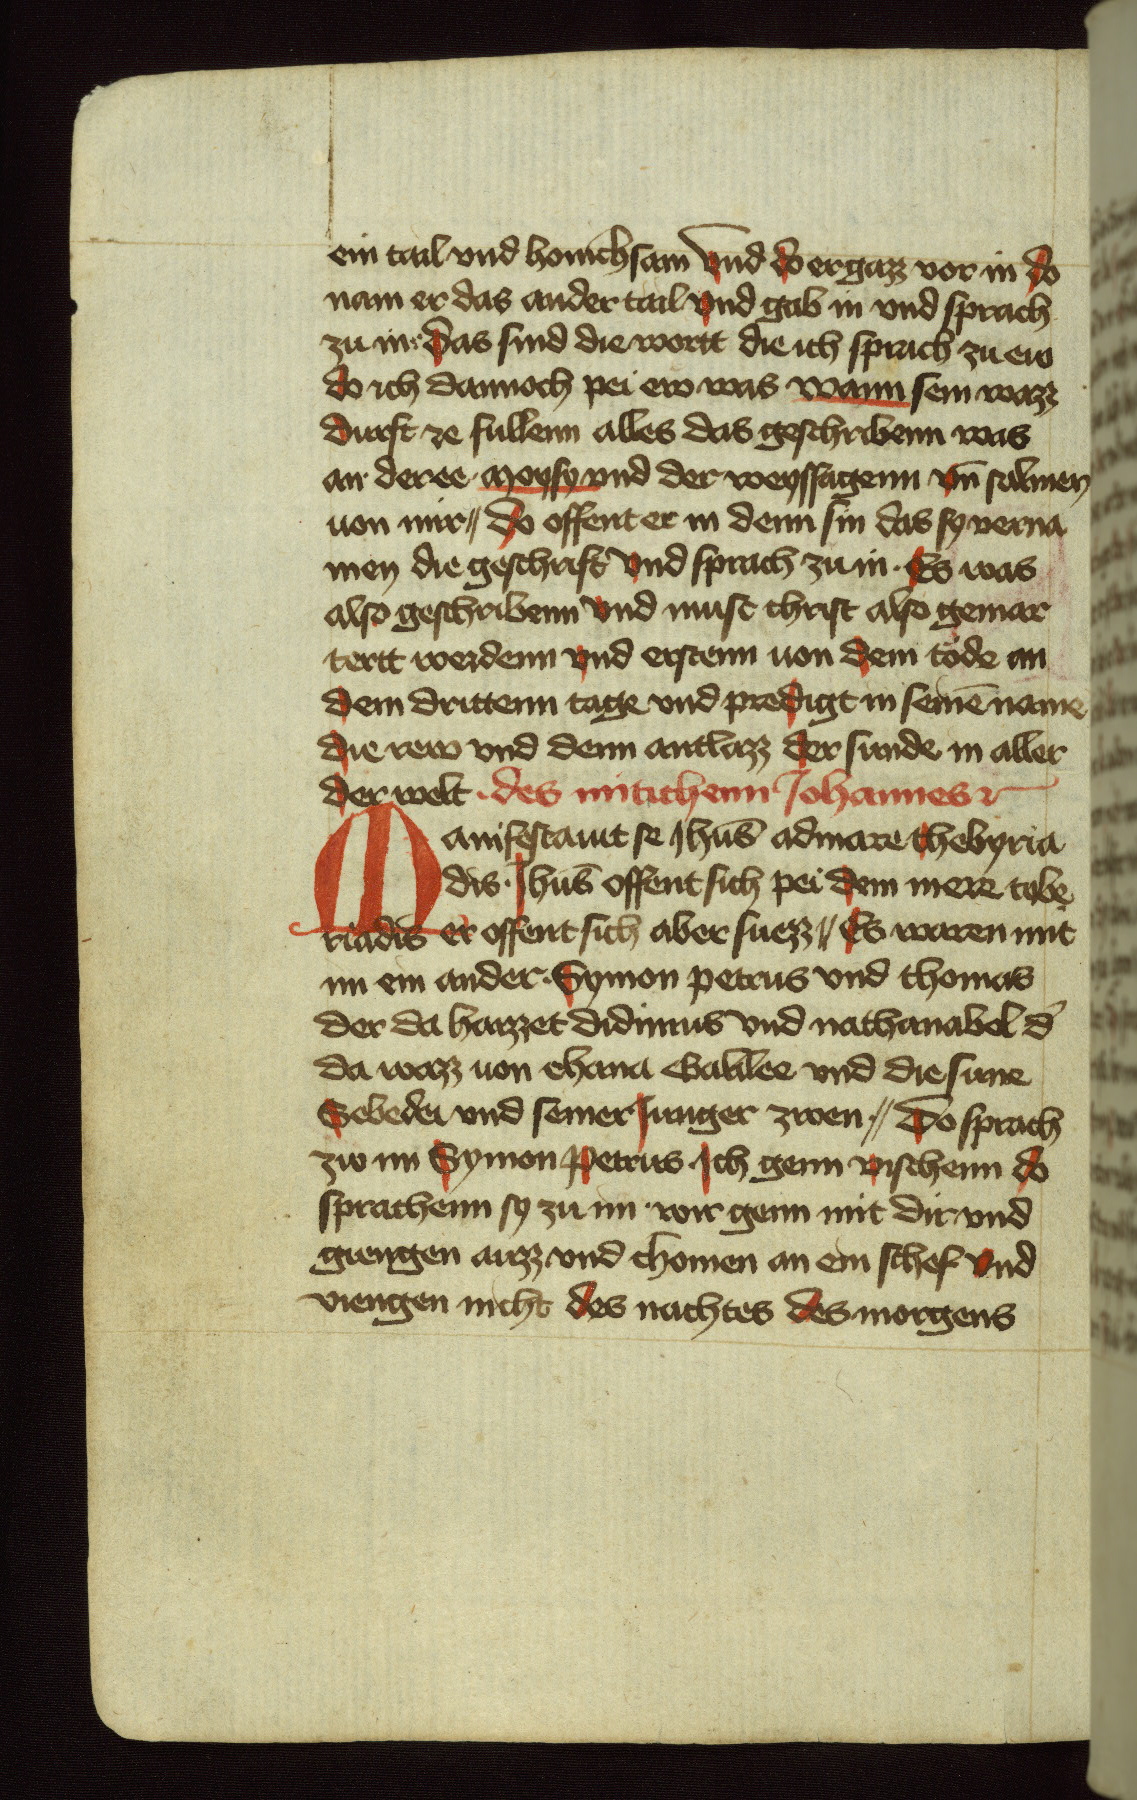 ein tail vnd honichsam vnd do er gazz vor in do
nam er das ander tail vnd gab in vnd sprach
zu in Das sind die wortt die ich sprach zu ew
do ich dannoch pei ew was wann sein wazz
durft ze fullenn alles das geschribenn was
an der ee moysy vnd der weyssagenn vn̄ salmen
uon mir // do offent er in denn sin das sy verna
men die geschrift vnd sprach zu in · Es was
also geschribenn vnd must christ also gemar
tertt werdenn vnd erstenn uon dem tode an
dem drittenn tage vnd predigt in seinē name
die rew vnd denn antlazz der sunde in aller
der welt · des mitichenn Johannes
Manifestauit se Jhūs ad mare thebyria
dis · Jhūs offent sich pei dem mere tybe
riadis er offent sich aber suezz // Es waren mit
im ein ander · Symon petrus vnd thomas
der da hazzet didimus vnd nathanabel d̉
da wazz uon chana Galilee vnd die sune
Zebedei vnd seiner Junger zwen // Do sprach
zw im Symon Petrus Ich genn vischenn do
sprachenn sy zu im · wir genn mit dir vnd
giengen auzz vnd chomen an ein schef vnd
viengen nicht des nachtes des morgens